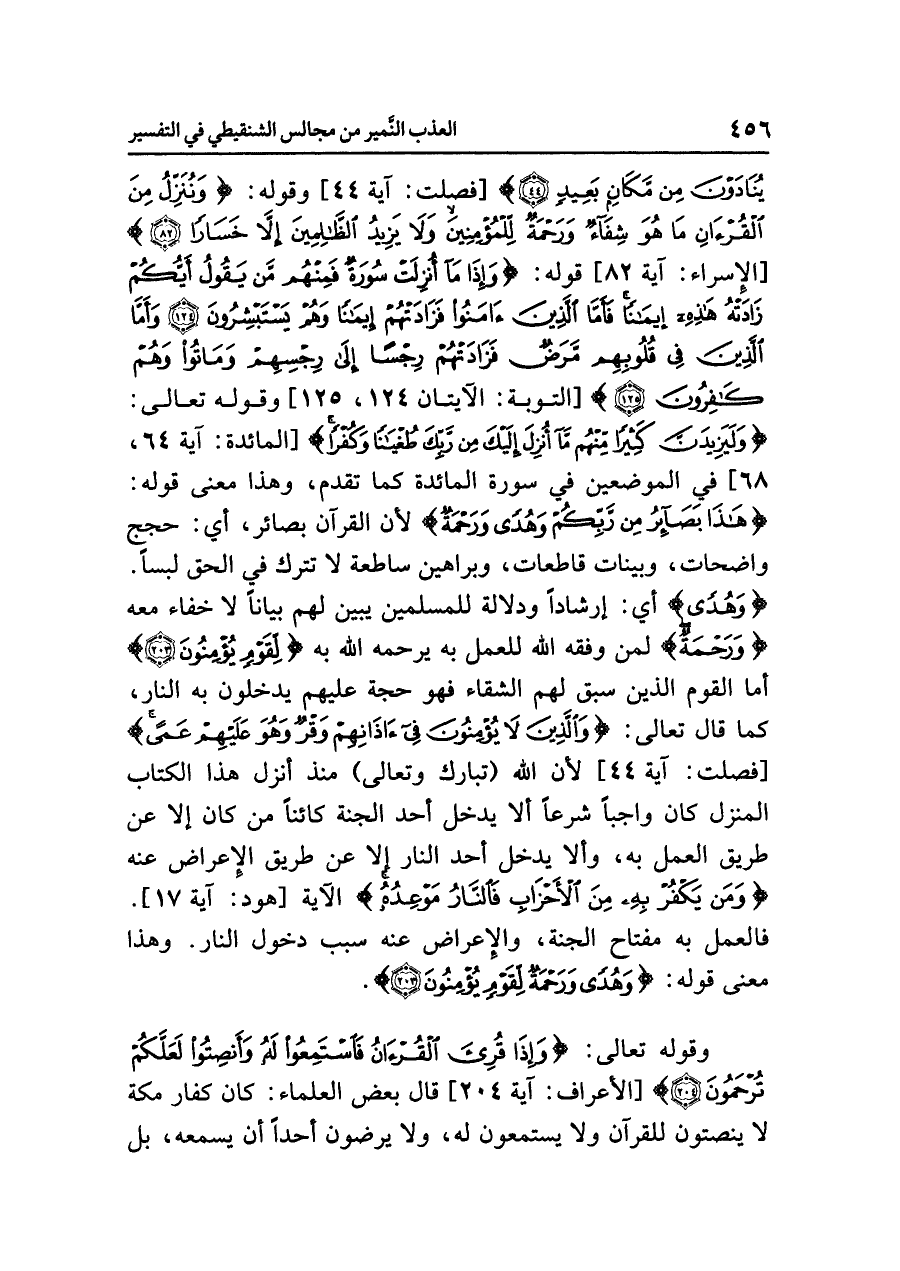 ٤٥٦ العذب النَّمير من مجالس الشنقيطي في التفسير
يُنَادَوْنَ مِن مَّكَانٍ بَعِيدٍ ﴿٤٤﴾ ﴾ [فصلت: آية ٤٤] وقوله: ﴿ وَنُنَزِّلُ مِنَ
ٱلْقُرْءَانِ مَا هُوَ شِفَآءٌ وَرَحْمَةٌ لِّلْمُؤْمِنِينَ ۙ وَلَا يَزِيدُ ٱلظَّٰلِمِينَ إِلَّا خَسَارًا ﴿٨٢﴾ ﴾
[الإسراء: آية ٨٢] قوله: ﴿ وَإِذَا مَآ أُنزِلَتْ سُورَةٌ فَمِنْهُم مَّن يَقُولُ أَيُّكُمْ
زَادَتْهُ هَٰذِهِۦٓ إِيمَٰنًا ۚ فَأَمَّا ٱلَّذِينَ ءَامَنُوا۟ فَزَادَتْهُمْ إِيمَٰنًا وَهُمْ يَسْتَبْشِرُونَ ﴿١٢٤﴾ وَأَمَّا
ٱلَّذِينَ فِى قُلُوبِهِم مَّرَضٌ فَزَادَتْهُمْ رِجْسًا إِلَىٰ رِجْسِهِمْ وَمَاتُوا۟ وَهُمْ
كَٰفِرُونَ ﴿١٢٥﴾ ﴾ [التوبة: الآيتان ١٢٤، ١٢٥] وقوله تعالى:
﴿ وَلَيَزِيدَنَّ كَثِيرًا مِّنْهُم مَّآ أُنزِلَ إِلَيْكَ مِن رَّبِّكَ طُغْيَٰنًا وَكُفْرًا ۚ ﴾ [المائدة: آية ٦٤،
٦٨] في الموضعين في سورة المائدة كما تقدم، وهذا معنى قوله:
﴿ هَٰذَا بَصَآئِرُ مِن رَّبِّكُمْ وَهُدًى وَرَحْمَةٌ ﴾ لأن القرآن بصائر، أي: حجج
واضحات، وبينات قاطعات، وبراهين ساطعة لا تترك في الحق لبساً.
﴿ وَهُدًى ﴾ أي: إرشاداً ودلالة للمسلمين يبين لهم بياناً لا خفاء معه
﴿ وَرَحْمَةٌ ﴾ لمن وفقه الله للعمل به يرحمه الله به ﴿ لِّقَوْمٍ يُؤْمِنُونَ ﴿٢٠٣﴾ ﴾
أما القوم الذين سبق لهم الشقاء فهو حجة عليهم يدخلون به النار،
كما قال تعالى: ﴿ وَٱلَّذِينَ لَا يُؤْمِنُونَ فِىٓ ءَاذَانِهِمْ وَقْرٌ وَهُوَ عَلَيْهِمْ عَمًى ۚ ﴾
[فصلت: آية ٤٤] لأن الله (تبارك وتعالى) منذ أنزل هذا الكتاب
المنزل كان واجباً شرعاً ألا يدخل أحد الجنة كائناً من كان إلا عن
طريق العمل به، وألا يدخل أحد النار إلا عن طريق الإعراض عنه
﴿ وَمَن يَكْفُرْ بِهِۦ مِنَ ٱلْأَحْزَابِ فَٱلنَّارُ مَوْعِدُهُۥ ۚ ﴾ الآية [هود: آية ١٧].
فالعمل به مفتاح الجنة، والإعراض عنه سبب دخول النار. وهذا
معنى قوله: ﴿ وَهُدًى وَرَحْمَةٌ لِّقَوْمٍ يُؤْمِنُونَ ﴿٢٠٣﴾ ﴾.
وقوله تعالى: ﴿ وَإِذَا قُرِئَ ٱلْقُرْءَانُ فَٱسْتَمِعُوا۟ لَهُۥ وَأَنصِتُوا۟ لَعَلَّكُمْ
تُرْحَمُونَ ﴿٢٠٤﴾ ﴾ [الأعراف: آية ٢٠٤] قال بعض العلماء: كان كفار مكة
لا ينصتون للقرآن ولا يستمعون له، ولا يرضون أحداً أن يسمعه، بل